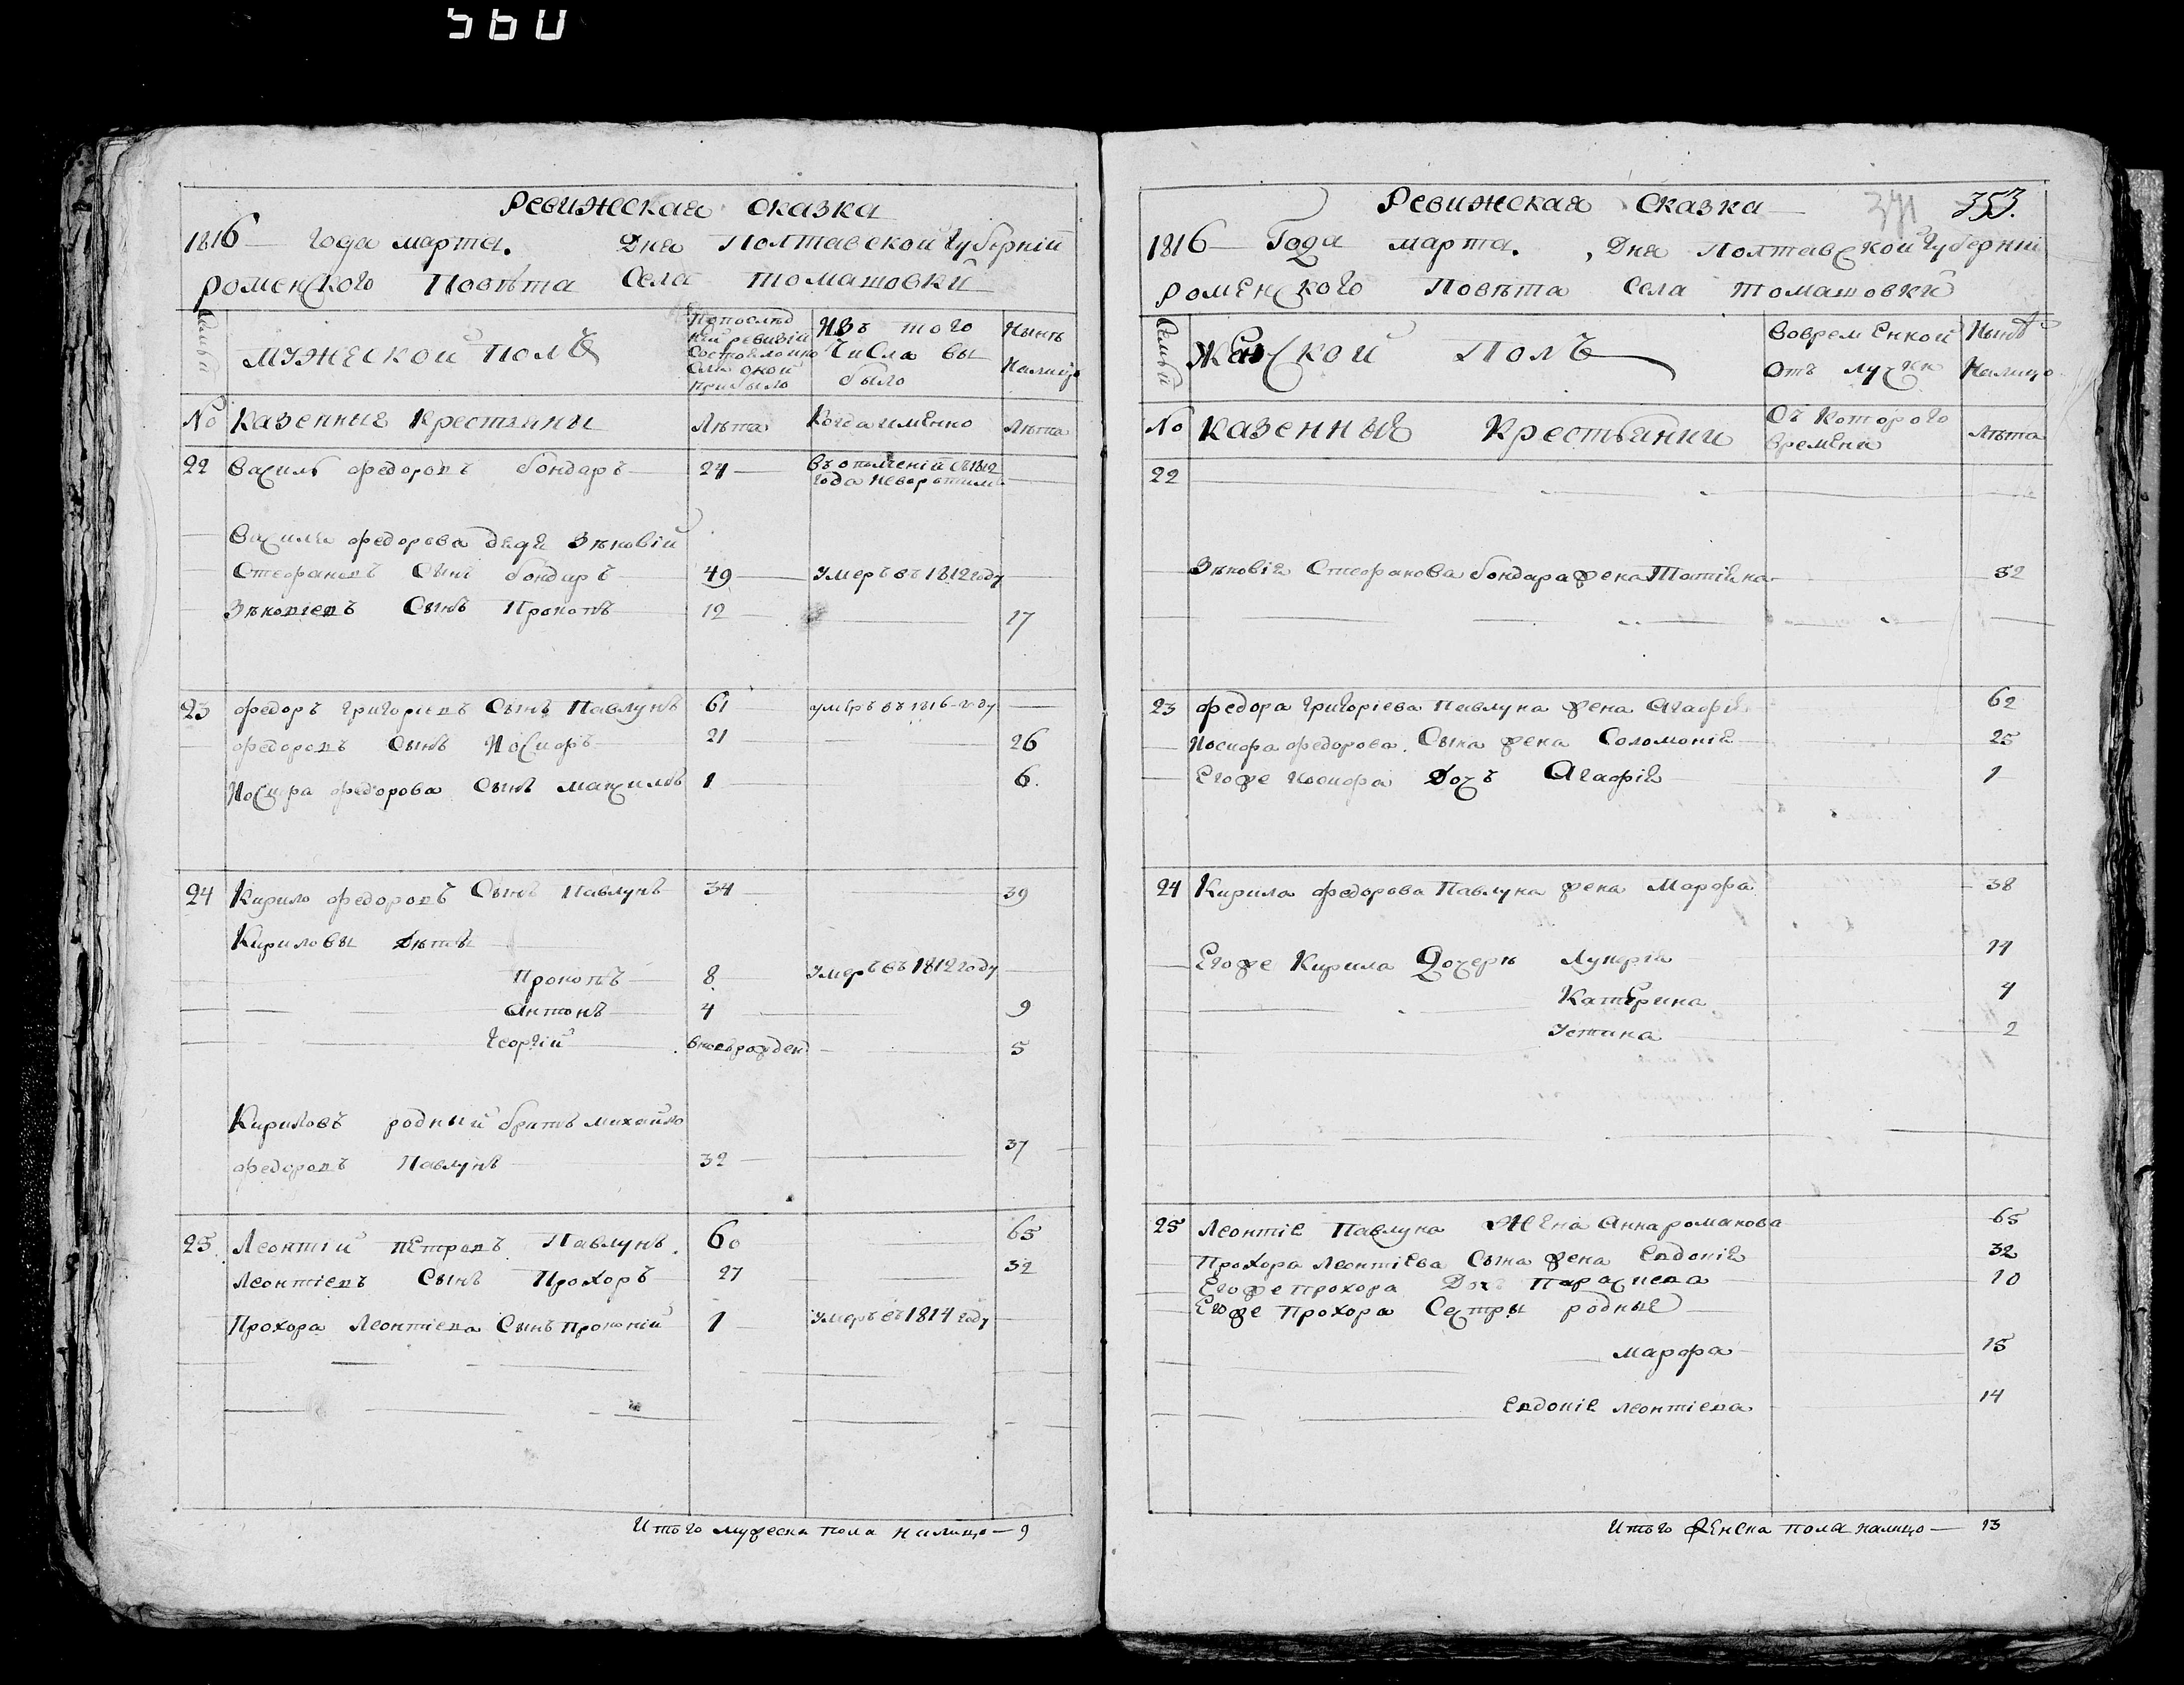 560
Ревижская сказка
1816 года марта. Дня Полтавской Губерній
роменского Повѣта Села томашовки
Семьи
мужеской полъ
По послѣд
ней ревизіи
состояло и по
сле оной
прибыло
Изъ того
числа вы
было
Нынѣ
Налицо
No казенные крестьяны
Лѣта
Когда имѣнно
Лѣта
22 Василь федоровъ бондарь 24
въ ополченіи съ 1812
года неворотился
Василя федорова дядя Зѣновій
Стефановъ Сынъ бондарь 49 Умеръ въ 1812 году
Зѣновіевъ Сынъ Прокопъ 12 17
23 федоръ григоріевъ Сынъ Павлунъ 61 умеръ въ 1816 году
федоровъ Сынъ Иосифъ 21 26
Иосифа федорова Сынъ максимъ 1 6.
24 Кирило федоровъ Сынъ Павлунъ 34 39
Кириловы Дѣти
Прокопъ 8 Умеръ въ 1812 году
Антонъ 4 9
Георгій вновърожден 5
Кириловъ родный братъ михайло
федоровъ Павлунъ 32 37
25 Леонтій петровъ Павлунъ 60 65
Леонтіевъ Сынъ Прохоръ 27 32
Прохора Леонтіева Сынъ Прокопій 1 Умеръ въ 1814 году
Итого мужеска пола налицо — 9
Ревижская Сказка 353.
371
1816 Года марта. Дня Полтавской Губерніи
роменского Повѣта Села томашовки
Семьи
Женской Полъ
Вовременной
отъ лучки
Нынѣ
Налицо
No казенные Крестьянки
Съ Которого
времена
Лѣта
22
Зѣновія Стефанова бондара жена Татіяна 52
23 федора григоріева Павлуна жена Агафія 62
Иосифа федорова Сына жена Соломонія 25
Егоже Иосифа Дочъ Агафія 1
24 Кирила федорова Павлуна жена Марфа 38
Егоже Кирила Дочери Лукерія 14
Катерина 4
Устина 2
25 Леонтія Павлуна Жена Анна романова 65
Прохора Леонтіева Сына жена Евдокія 32
Егоже прохора Дочъ Парасиева 10
Егоже прохора Сестры родные
марфа 15
Евдокія леонтіева 14
Итого женска пола налицо — 13